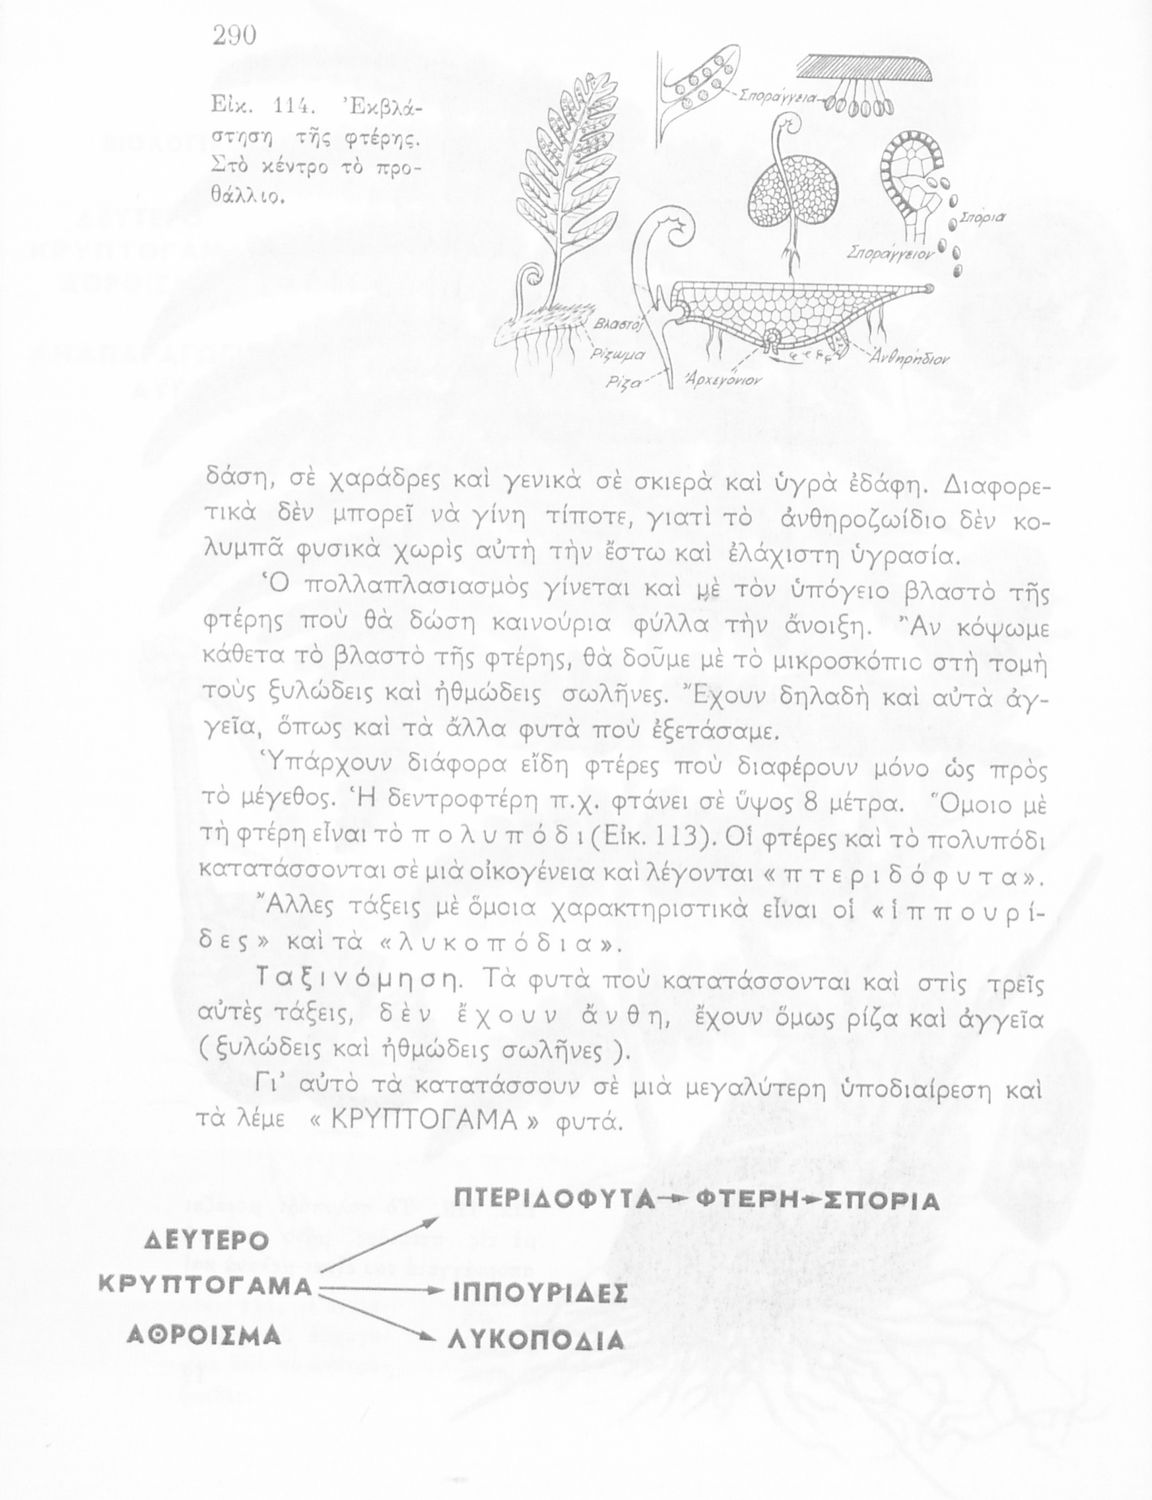 290
Εἰκ. 114. Ἐκβλά-
στηση τῆς φτέρης.
Στὸ κέντρο τὸ προ-
θάλλιο.
Σποράγγεια
Σπόρια
Σποράγγειον
Βλαστός
Ρίζωμα
Ρίζα
Ἀρχεγόνιον
Ἀνθηρήδιον
δάση, σὲ χαράδρες καὶ γενικὰ σὲ σκιερὰ καὶ ὑγρὰ ἐδάφη. Διαφορε-
τικὰ δὲν μπορεῖ νὰ γίνη τίποτε, γιατὶ τὸ ἀνθηροζωίδιο δὲν κο-
λυμπᾶ φυσικὰ χωρὶς αὐτὴ τὴν ἔστω καὶ ἐλάχιστη ὑγρασία.
Ὁ πολλαπλασιασμὸς γίνεται καὶ μὲ τὸν ὑπόγειο βλαστὸ τῆς
φτέρης ποὺ θὰ δώση καινούρια φύλλα τὴν ἄνοιξη. Ἂν κόψωμε
κάθετα τὸ βλαστὸ τῆς φτέρης, θὰ δοῦμε μὲ τὸ μικροσκόπιο στὴ τομὴ
τοὺς ξυλώδεις καὶ ἠθμώδεις σωλῆνες. Ἔχουν δηλαδὴ καὶ αὐτὰ ἀγ-
γεῖα, ὅπως καὶ τὰ ἄλλα φυτὰ ποὺ ἐξετάσαμε.
Ὑπάρχουν διάφορα εἴδη φτέρες ποὺ διαφέρουν μόνο ὡς πρὸς
τὸ μέγεθος. Ἡ δεντροφτέρη π.χ. φτάνει σὲ ὕψος 8 μέτρα. Ὅμοιο μὲ
τὴ φτέρη εἶναι τὸ π ο λ υ π ό δ ι (Εἰκ. 113). Οἱ φτέρες καὶ τὸ πολυπόδι
κατατάσσονται σὲ μιὰ οἰκογένεια καὶ λέγονται « π τ ε ρ ι δ ό φ υ τ α ».
Ἄλλες τάξεις μὲ ὅμοια χαρακτηριστικὰ εἶναι οἱ « ἱ π π ο υ ρ ί-
δ ε ς » καὶ τὰ « λ υ κ ο π ό δ ι α ».
Τ α ξ ι ν ό μ η σ η. Τὰ φυτὰ ποὺ κατατάσσονται καὶ στὶς τρεῖς
αὐτὲς τάξεις, δ ὲ ν ἔ χ ο υ ν ἄ ν θ η, ἔχουν ὅμως ρίζα καὶ ἀγγεῖα
( ξυλώδεις καὶ ἠθμώδεις σωλῆνες ).
Γι' αὐτὸ τὰ κατατάσσουν σὲ μιὰ μεγαλύτερη ὑποδιαίρεση καὶ
τὰ λέμε « ΚΡΥΠΤΟΓΑΜΑ » φυτά.
ΠΤΕΡΙΔΟΦΥΤΑ→ ΦΤΕΡΗ→ΣΠΟΡΙΑ
ΔΕΥΤΕΡΟ
ΚΡΥΠΤΟΓΑΜΑ
ΙΠΠΟΥΡΙΔΕΣ
ΑΘΡΟΙΣΜΑ
ΛΥΚΟΠΟΔΙΑ